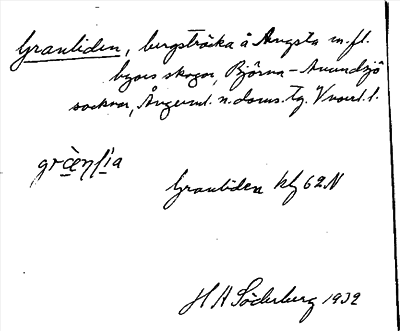 Granliden, bergsträcka å Ångsta m.fl.
byars skogar, Björna - Anundsjö
socknar, Ångerml. n. doms. tg. V norrl. l.
Granliden kbl 62 N
H A Söderberg 1932